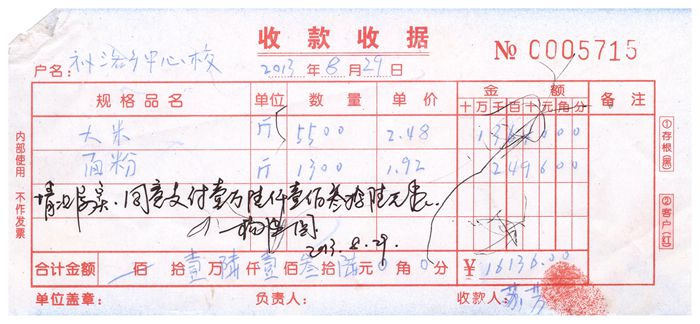 收款收据
№ 0005715
户名: 中心校 2013年8月29日
规格品名 单位 数量 单价 金额 备注
十万千百十元角分
大米 斤 5500 2.48 1364000
面粉 斤 1300 1.92 249600
情况属实、同意支付壹万陆仟壹佰叁拾陆元正.
2013.8.29.
合计金额 佰 拾壹万陆仟壹佰叁拾陆元0角0分 ¥16136.00
单位盖章: 负责人: 收款人:
内部使用 不作发票
①存根(黑)
②客户(红)